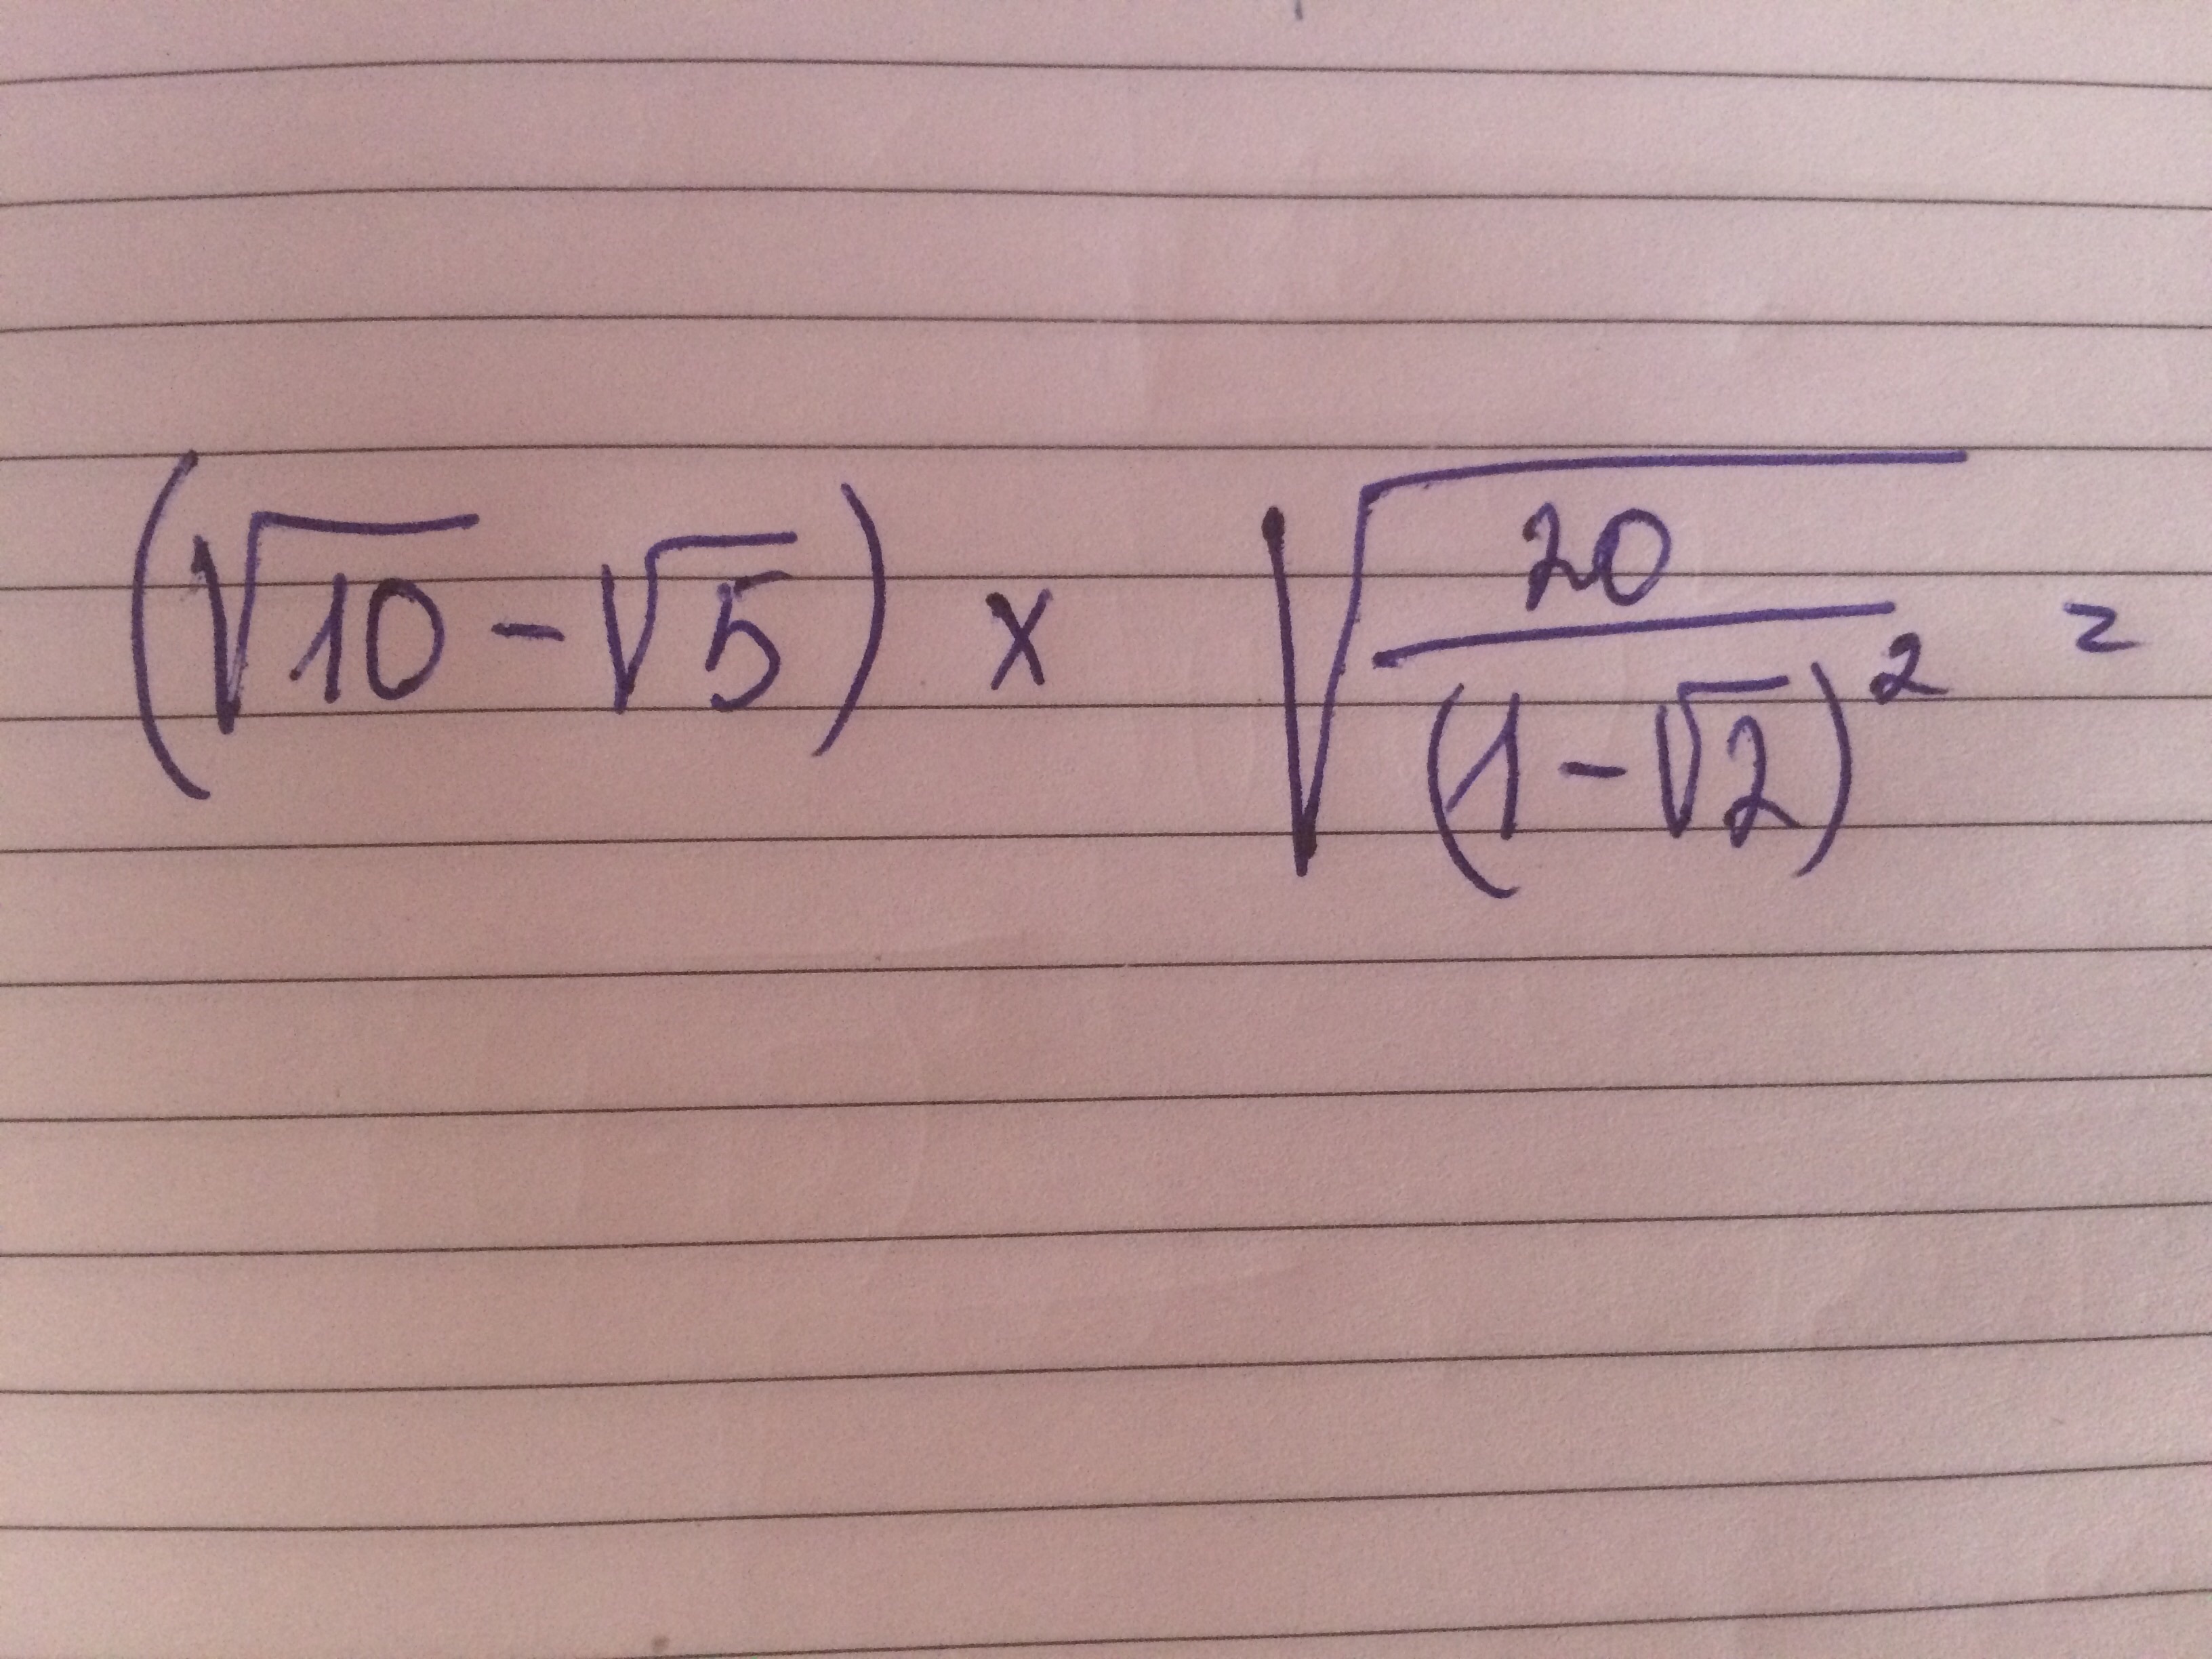 (√10 - √5) x √(20/(1-√2)²) =